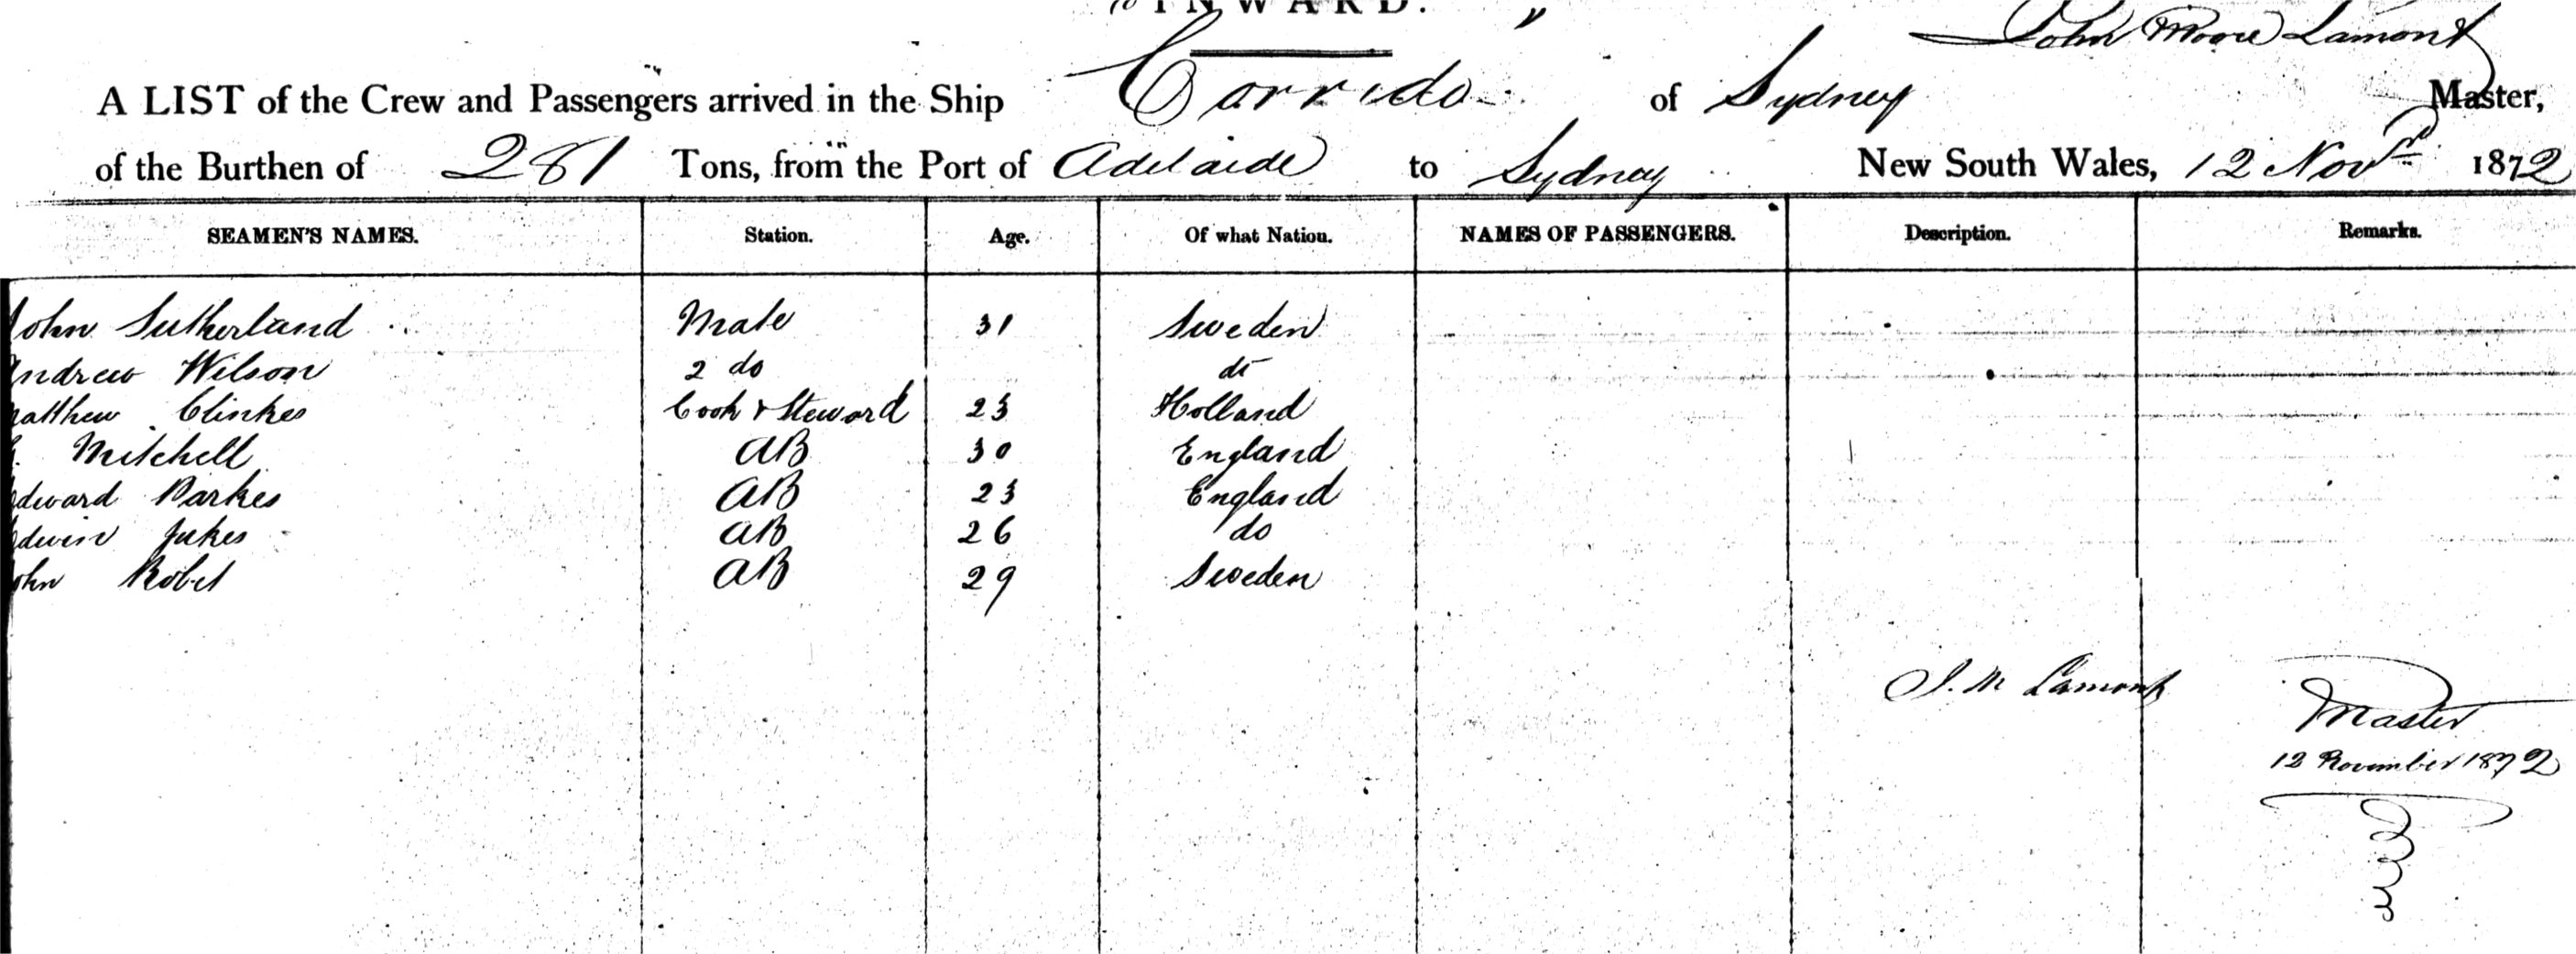 INWARD.
John Moore Lamont
A LIST of the Crew and Passengers arrived in the Ship Corrido of Sydney Master,
of the Burthen of 281 Tons, from the Port of Adelaide to Sydney New South Wales, 12 Novr 1872
SEAMEN'S NAMES. Station. Age. Of what Nation. NAMES OF PASSENGERS. Description. Remarks.
John Sutherland Mate 31 Sweden
Andrew Wilson 2 do do
Matthew Clinkes Cook & Steward 23 Holland
Mitchell AB 30 England
Edward Parkes AB 23 England
Edwin Jukes AB 26 do
John Robet AB 29 Sweden
J. M Lamont
Master
12 November 1872